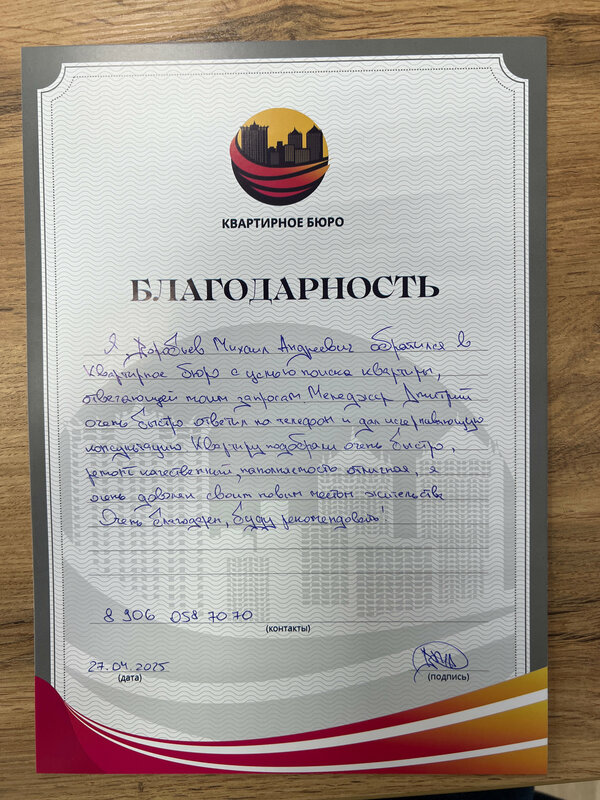 КВАРТИРНОЕ БЮРО
БЛАГОДАРНОСТЬ
Я Воробьев Михаил Андреевич обратился в
Квартирное бюро с целью поиска квартиры,
отвечающей моим запросам Менеджер Дмитрий
очень быстро ответил по телефон и дал исчерпывающую
консультацию Квартиру подобрали очень быстро,
ремонт качественный, наполняемость отличная, я
очень доволен своим новым местом жительства
Очень благодарен, буду рекомендовать!
8 906 058 70 70
(контакты)
27.04.2025
(дата)
(подпись)